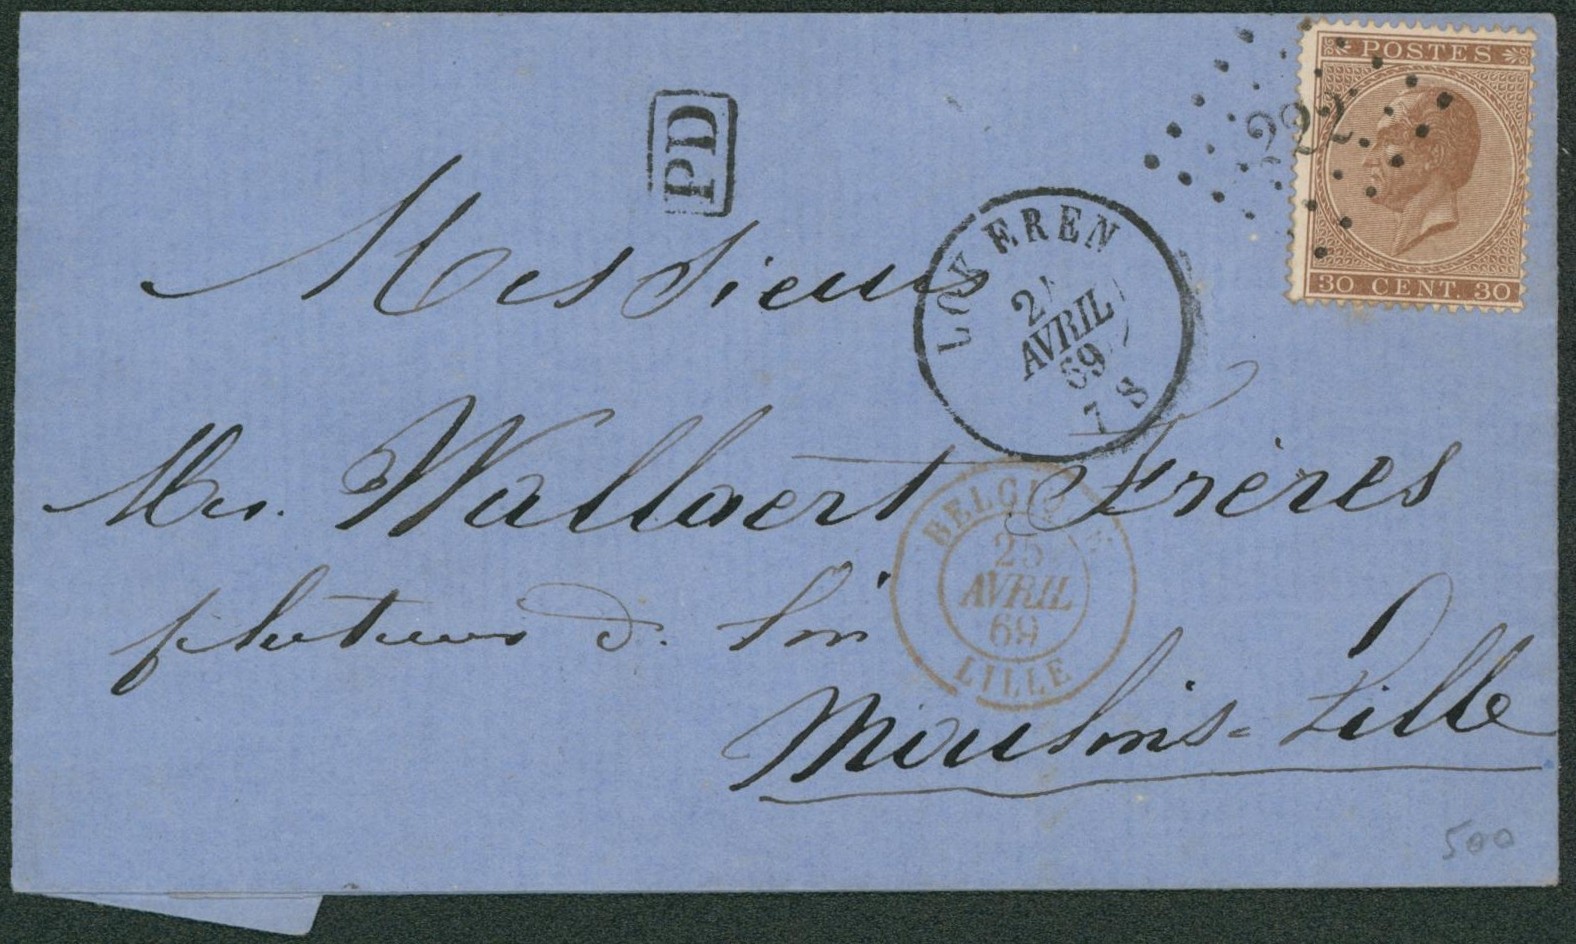 POSTES
222
30 CENT. 30
PD
LOKEREN
2
AVRIL
69
7 S
Messieurs
Mrs. Wallaert Frères
filateurs d. Lin
BELGIQUE
25
AVRIL
69
LILLE
Moulins-Lille
500